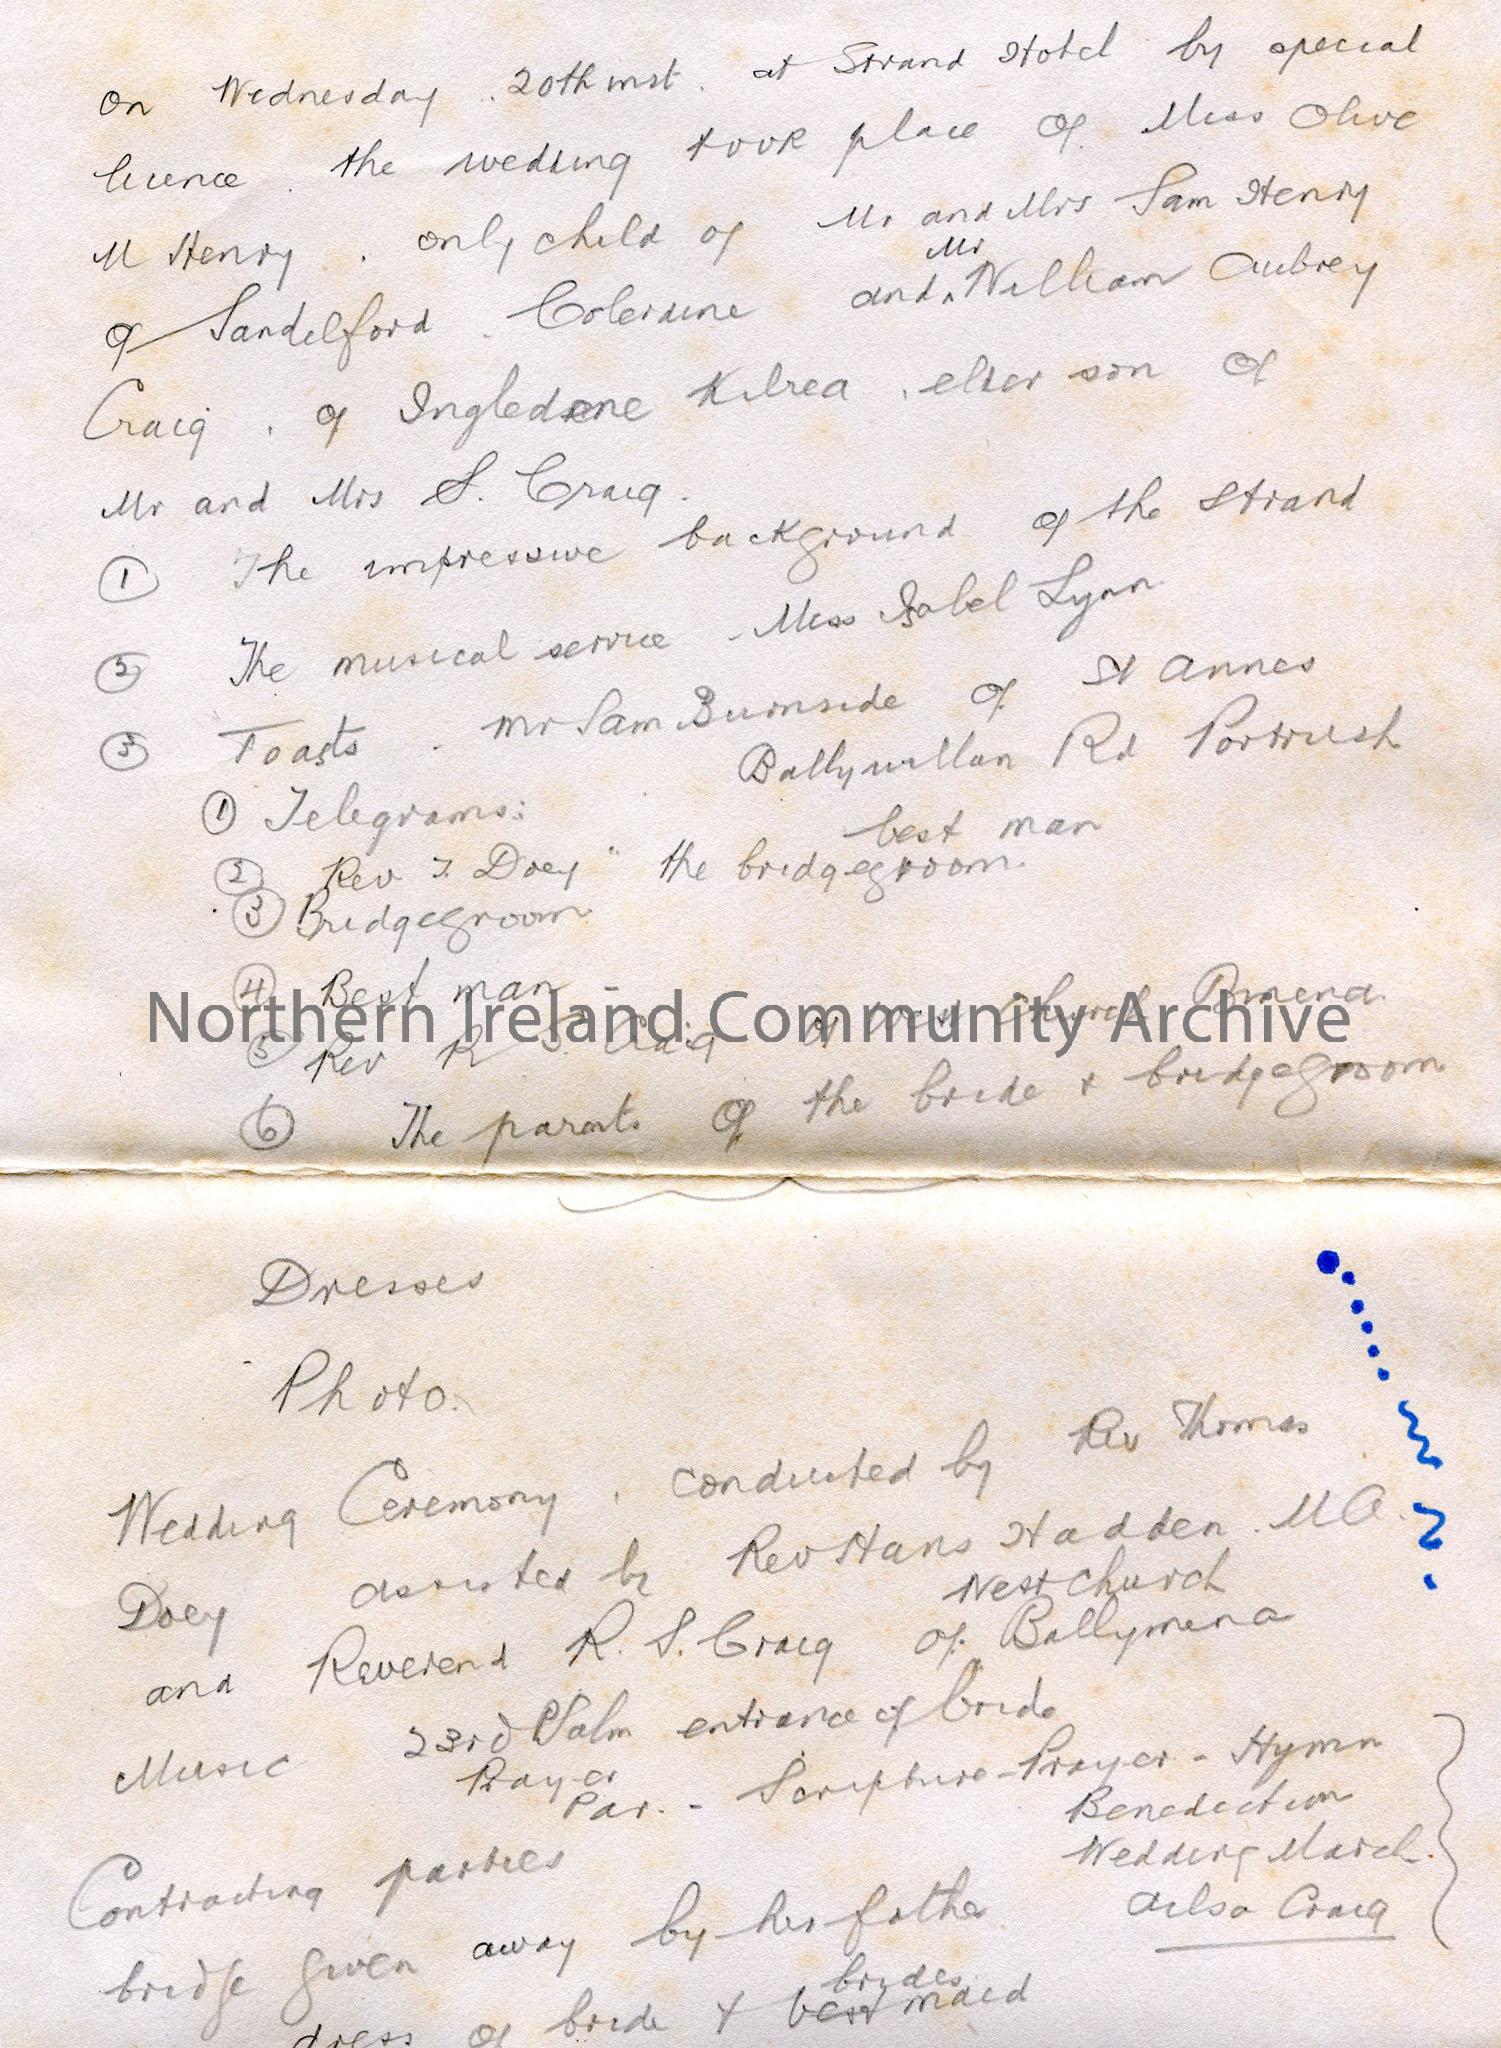 On Wednesday . 20th inst. at Strand Hotel by special
licence . the wedding took place of Miss Olive
M Henry . only child of Mr and Mrs Sam Henry
of Sandelford . Coleraine and ^ Mr William Aubrey
Craig . of Ingledene Kilrea . elder son of
Mr and Mrs S. Craig.
① The impressive background of the Strand
② The musical service - Miss Isabel Lynn
③ Toasts . Mr Sam Burnside of St Annes
Ballywillan Rd Portrush
① Telegrams:
best man
② Rev T. Doey " the bridgegroom.
③ Bridgegroom
④ Best man -
⑤ Rev R S. Craig of West Church Bmena.
Northern Ireland Community Archive
⑥ The parents of the bride & bridgegroom
Dresses
Photo.
Wedding Ceremony . conducted by Rev Thomas
Doey assisted by Rev Hans Hadden . M A.
West Church
and Reverend R. S. Craig of Ballymena
Music 23rd Psalm entrance of bride
Prayer
Par. - Scripture - Prayer - Hymn
Benediction
Wedding March.
Contracting parties
Ailsa Craig
bridge given away by her father
brides
dress of bride & best maid